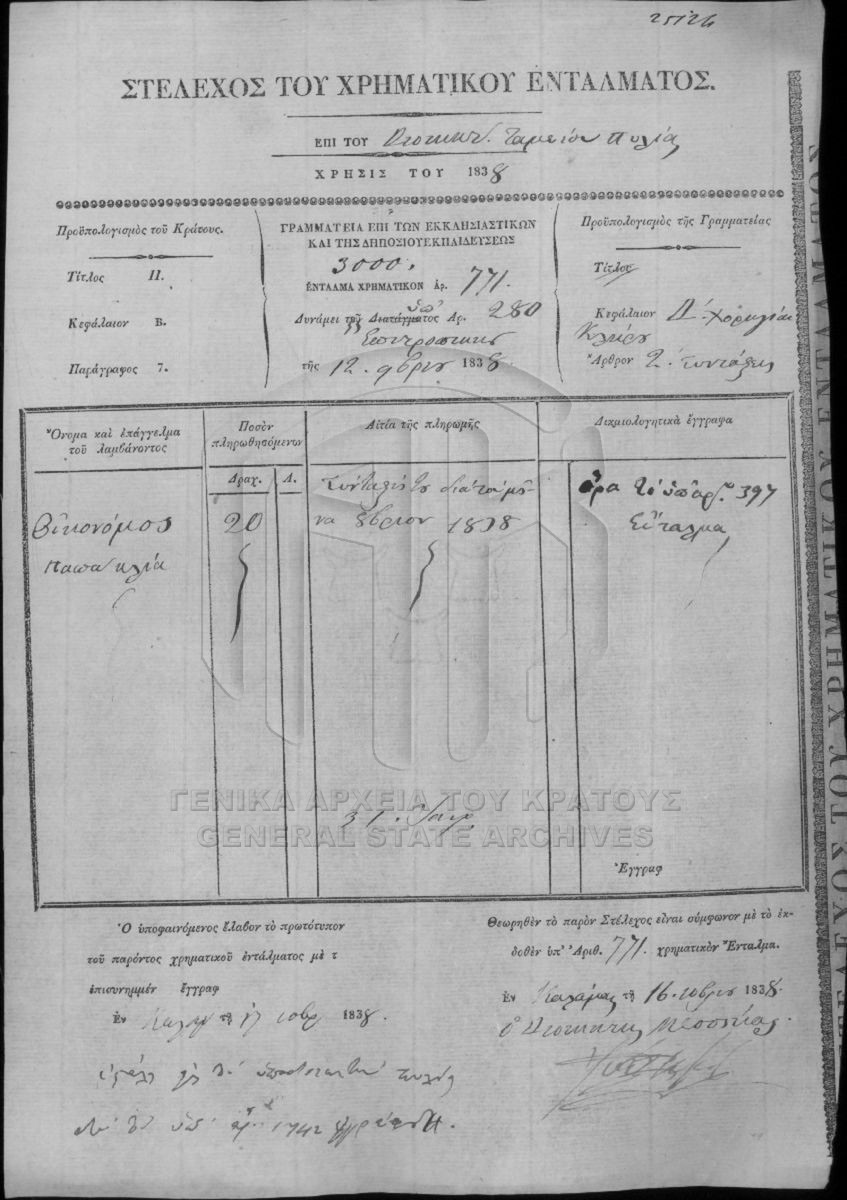 25126
ΣΤΕΛΕΧΟΣ ΤΟΥ ΧΡΗΜΑΤΙΚΟΥ ΕΝΤΑΛΜΑΤΟΣ.
ΕΠΙ ΤΟΥ Διοικητ. Ταμείου Πυλίας
ΧΡΗΣΙΣ ΤΟΥ 1838
Προϋπολογισμὸς τοῦ Κράτους.
Τίτλος ΙΙ.
Κεφάλαιον Β.
Παράγραφος 7.
ΓΡΑΜΜΑΤΕΙΑ ΕΠΙ ΤΩΝ ΕΚΚΛΗΣΙΑΣΤΙΚΩΝ
ΚΑΙ ΤΗΣ ΔΗΜΟΣΙΟΥ ΕΚΠΑΙΔΕΥΣΕΩΣ
3000.
ΕΝΤΑΛΜΑ ΧΡΗΜΑΤΙΚΟΝ ἀρ. 771.
Δυνάμει τοῦ Διατάγματος Αρ. ὑπ' 280
τῆς 12. 9βρίου 1838
Προϋπολογισμὸς τῆς Γραμματείας
Τίτλος
Κεφάλαιον Δ΄. Χορηγίαι
Κλήρου
Ἄρθρον 2. Συντάξεις
Ὄνομα καὶ ἐπάγγελμα
τοῦ λαμβάνοντος
Ποσὸν
πληρωθησόμενον
Δραχ. Λ.
Αἰτία τῆς πληρωμῆς
Δικαιολογητικὰ ἔγγραφα
Οἰκονόμος
Παπα Ηλία
20
Σύνταξίς του διὰ τὸν μῆ-
να 8βριον 1838
ὅρα τὸ ὑπ' ἀρ. 397
Ἔνταλμα
31.
Ἔγγραφ
ΓΕΝΙΚΑ ΑΡΧΕΙΑ ΤΟΥ ΚΡΑΤΟΥΣ
GENERAL STATE ARCHIVES
Ὁ ὑποφαινόμενος ἔλαβον τὸ πρωτότυπον
τοῦ παρόντος χρηματικοῦ ἐντάλματος μὲ τ
ἐπισυνημμέν ἔγγραφ
Ἐν Καλάμ τῇ 17 10βρ 1838.
ὑπ' ἀρ. 1742
Θεωρηθὲν τὸ παρὸν Στέλεχος εἶναι σύμφωνον μὲ τὸ ἐκ-
δοθὲν ὑπ' Ἀριθ. 771. χρηματικὸν Ἔνταλμα.
Ἐν Καλάμαις τῇ 16. 10βρίου 1838.
ὁ Διοικητὴς Μεσσηνίας.
ΣΤΕΛΕΧΟΣ ΤΟΥ ΧΡΗΜΑΤΙΚΟΥ ΕΝΤΑΛΜΑΤΟΣ